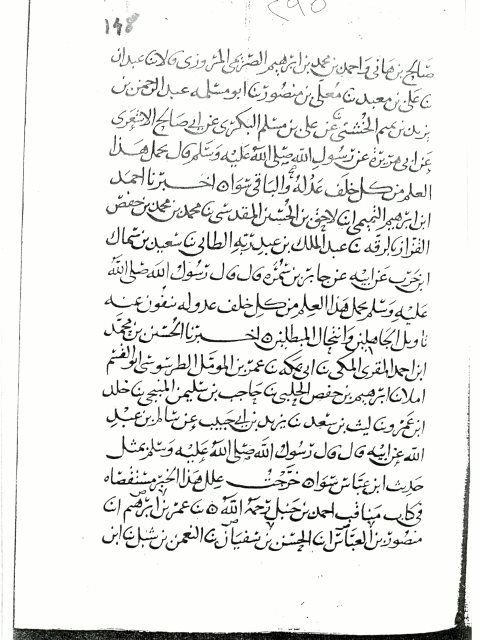 ١٤٨
صالح بن هانئ واحمد بن محمد بن ابرهيم المروزي قالا نا عبدان
نا علي بن معبد نا معلى بن منصور نا ابو مسلمه عبد الرحمن بن
يزيد بن تميم عن علي بن مسلم البكري عن ابي صالح الاشعري
عن ابي هريرة عن رسول الله صلى الله عليه وسلم قال يحمل هذا
العلم من كل خلف عدوله والباقي سوا اخبرنا احمد
ابن ابرهيم التميمي انا لاحق بن الحسين المقدسي نا محمد بن محمد بن حفص
القزاز بالرقه نا عبد الملك بن عبد ربه الطائي نا سعيد بن سماك
ابن حرب عن ابيه عن جابر بن سمره قال قال رسول الله صلى الله
عليه وسلم يحمل هذا العلم من كل خلف عدوله ينفون عنه
تاويل الجاهلين وانتحال المبطلين اخبرنا الحسن بن محمد
ابن احمد المقري المكي نا ابي بمكه نا عمر بن المومل الطرسوسي ابو القسم
املا نا ابرهيم بن حفص الحلبي نا حاجب بن سليمن المنبجي نا خلد
ابن عمرو نا ليث بن سعد نا يزيد بن ابي حبيب عن سالم بن عبد
الله عن ابيه قال قال رسول الله صلى الله عليه وسلم بمثل
حديث ابن عباس سوا خرجت علل هذا الخبر مستقصاه
في كتاب مناقب احمد بن حنبل رحمه الله نا عمر بن ابرهيم انا
منصور بن العباس انا الحسن بن سفيان نا النعمن بن شبل نا ابن